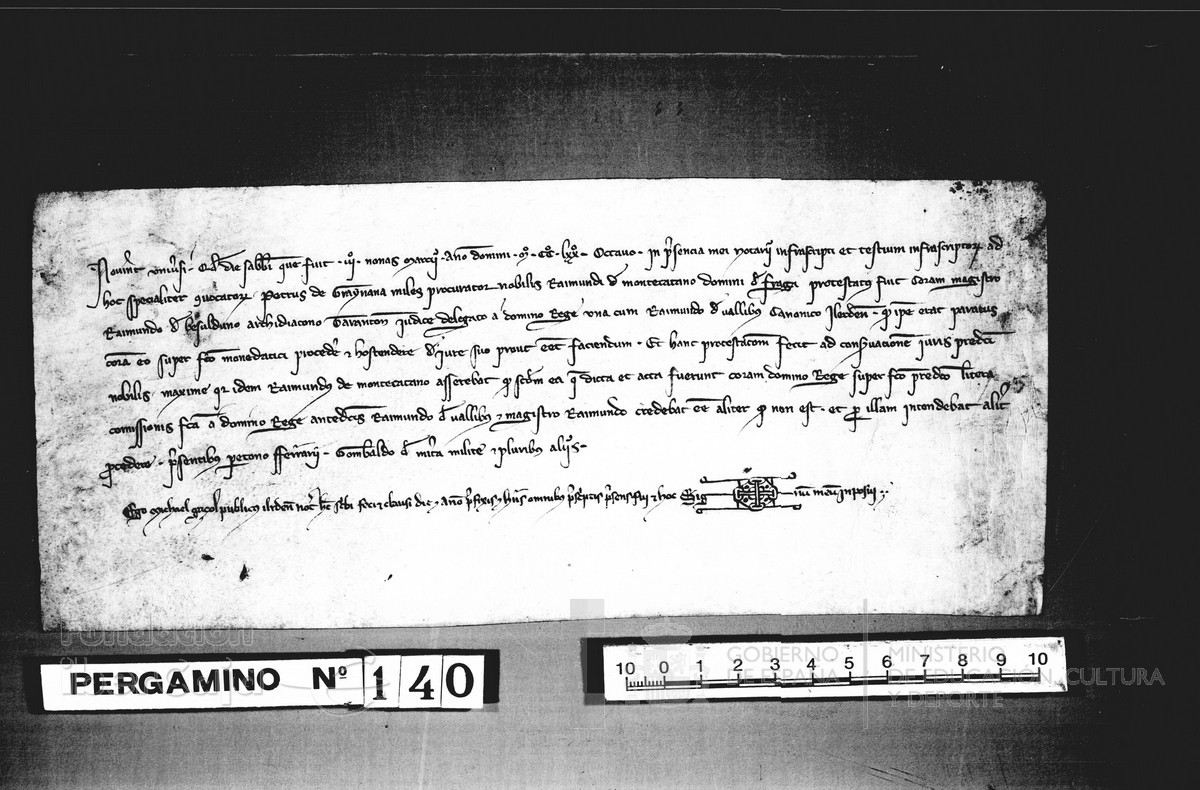 Noviͥnt univͥsi · Qd die sabbi que fuit · iiij · nonas marcij · año domini · Mº · CCº · lxxº · Octavo · in pͥsencia mei Notarij infrascripti et testium infrascriptorꝝ ad
hoc specialiter quocatorꝝ Petrus de miles procurator nobilis Raimundi d montecatano domini d Fraga protestato fuit coram magistro
Raimundo d besulduno archidiacono judice delegato a domino Rege una cum Raimundo d vallibus Canonico Ilerden qͥ ipe erat paratus
cora eo super fco monedatici procedͥe ⁊ hostendere d iure suo prout eet faciendum · Et hanc protestacom fecit ad conservacione iuris predci
nobilis maxime qͥ idem Raimundus de montecatano asserebat qͥ scdm ea qͥ dicta et acta fuerunt coram domino Rege super fco predcto littera
comissionis fca a domino Rege antedcis Raimundo d vallibus ⁊ magistro Raimundo credebat ee aliter qͥ non est · et ꝑ illam intendebat alit
ꝓcedere · pͥsentibus ꝑetono fferrarij · Gombaldo d milite ⁊ pluribus alijs
Ego Michael publicus ilrden not hc scbi feci ⁊ clausi die ⁊ año pͥfixis · omnibus pͥsens fui ⁊ hoc Sig num meu inposui
PERGAMINO Nº 140
10 0 1 2 3 4 5 6 7 8 9 10
Fundación
GOBIERNO DE ESPAÑA
MINISTERIO DE EDUCACIÓN, CULTURA Y DEPORTE